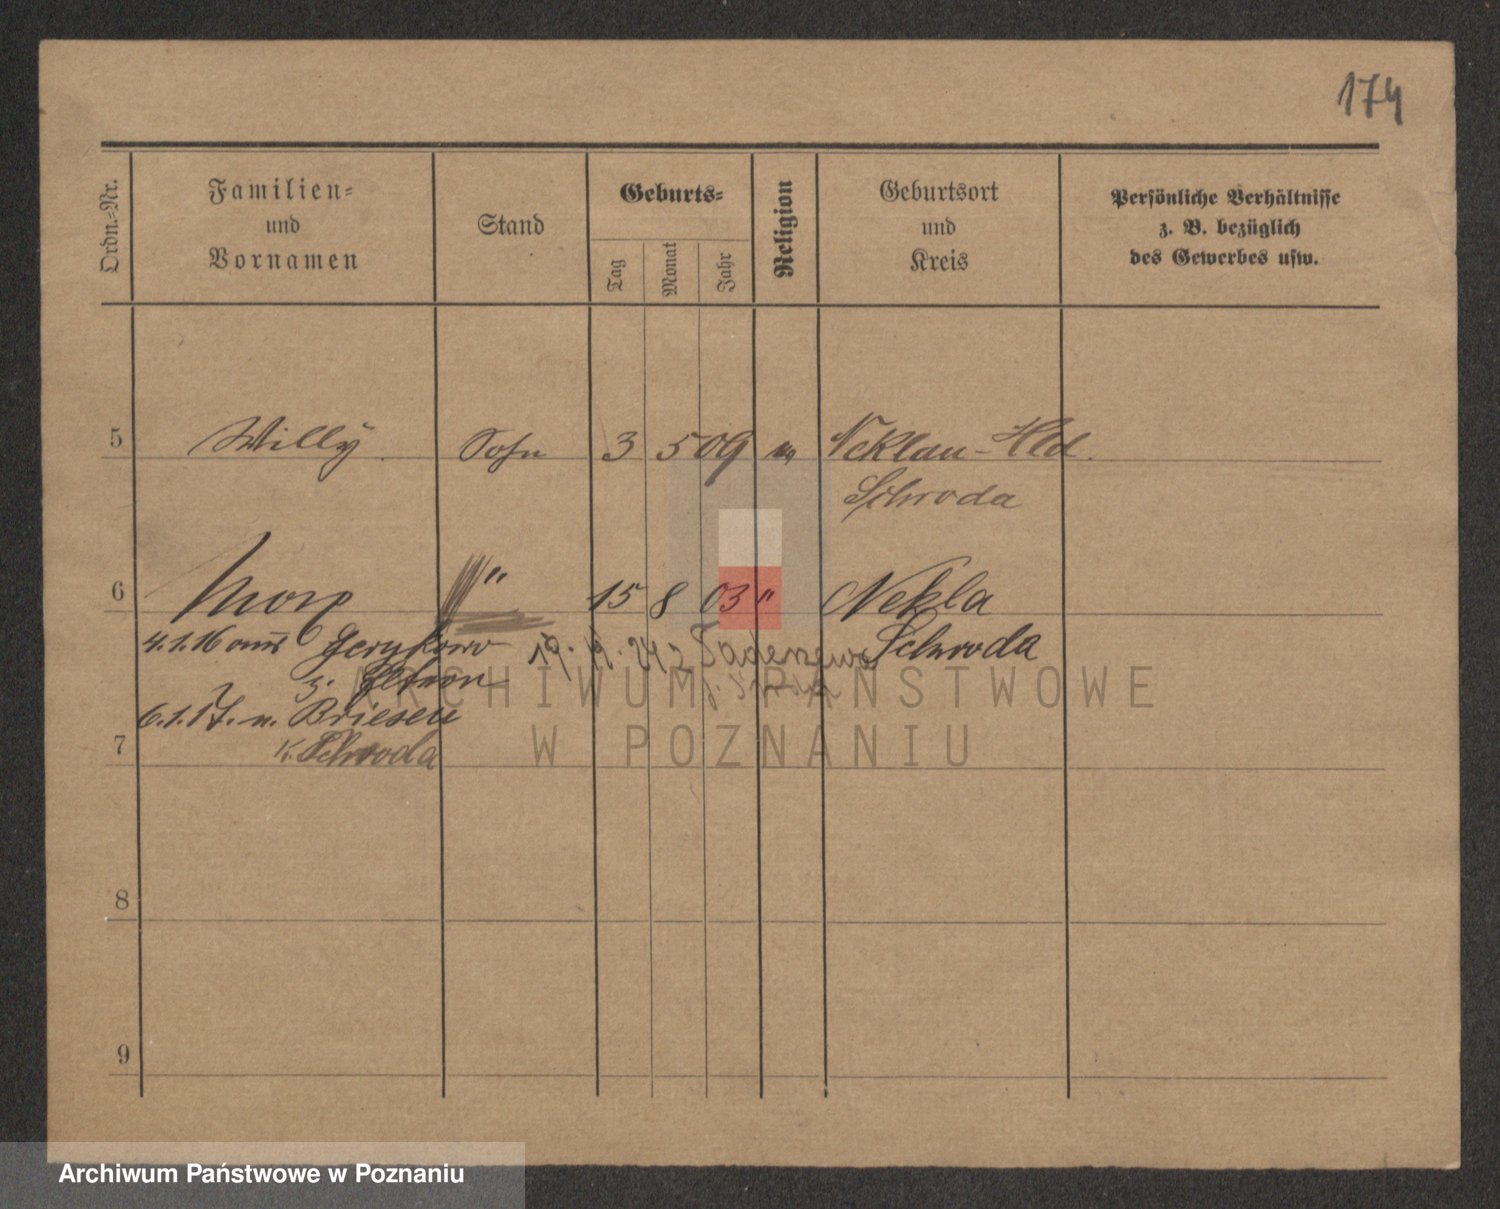 174
Ordn.-Nr.
Familien-
und
Vornamen
Stand
Geburts-
Tag
Monat
Jahr
Religion
Geburtsort
und
Kreis
Persönliche Verhältnisse
z. B. bezüglich
des Gewerbes usw.
5 Willy Sohn 3 5 09 Neklau-Hld.
Schroda
6 Max " 15 8 03 " Nekla
Schroda
4.1.16 aus
6.1.17. n. Briesen
K. Schroda
7
8
9
ARCHIWUM PAŃSTWOWE
W POZNANIU
Archiwum Państwowe w Poznaniu